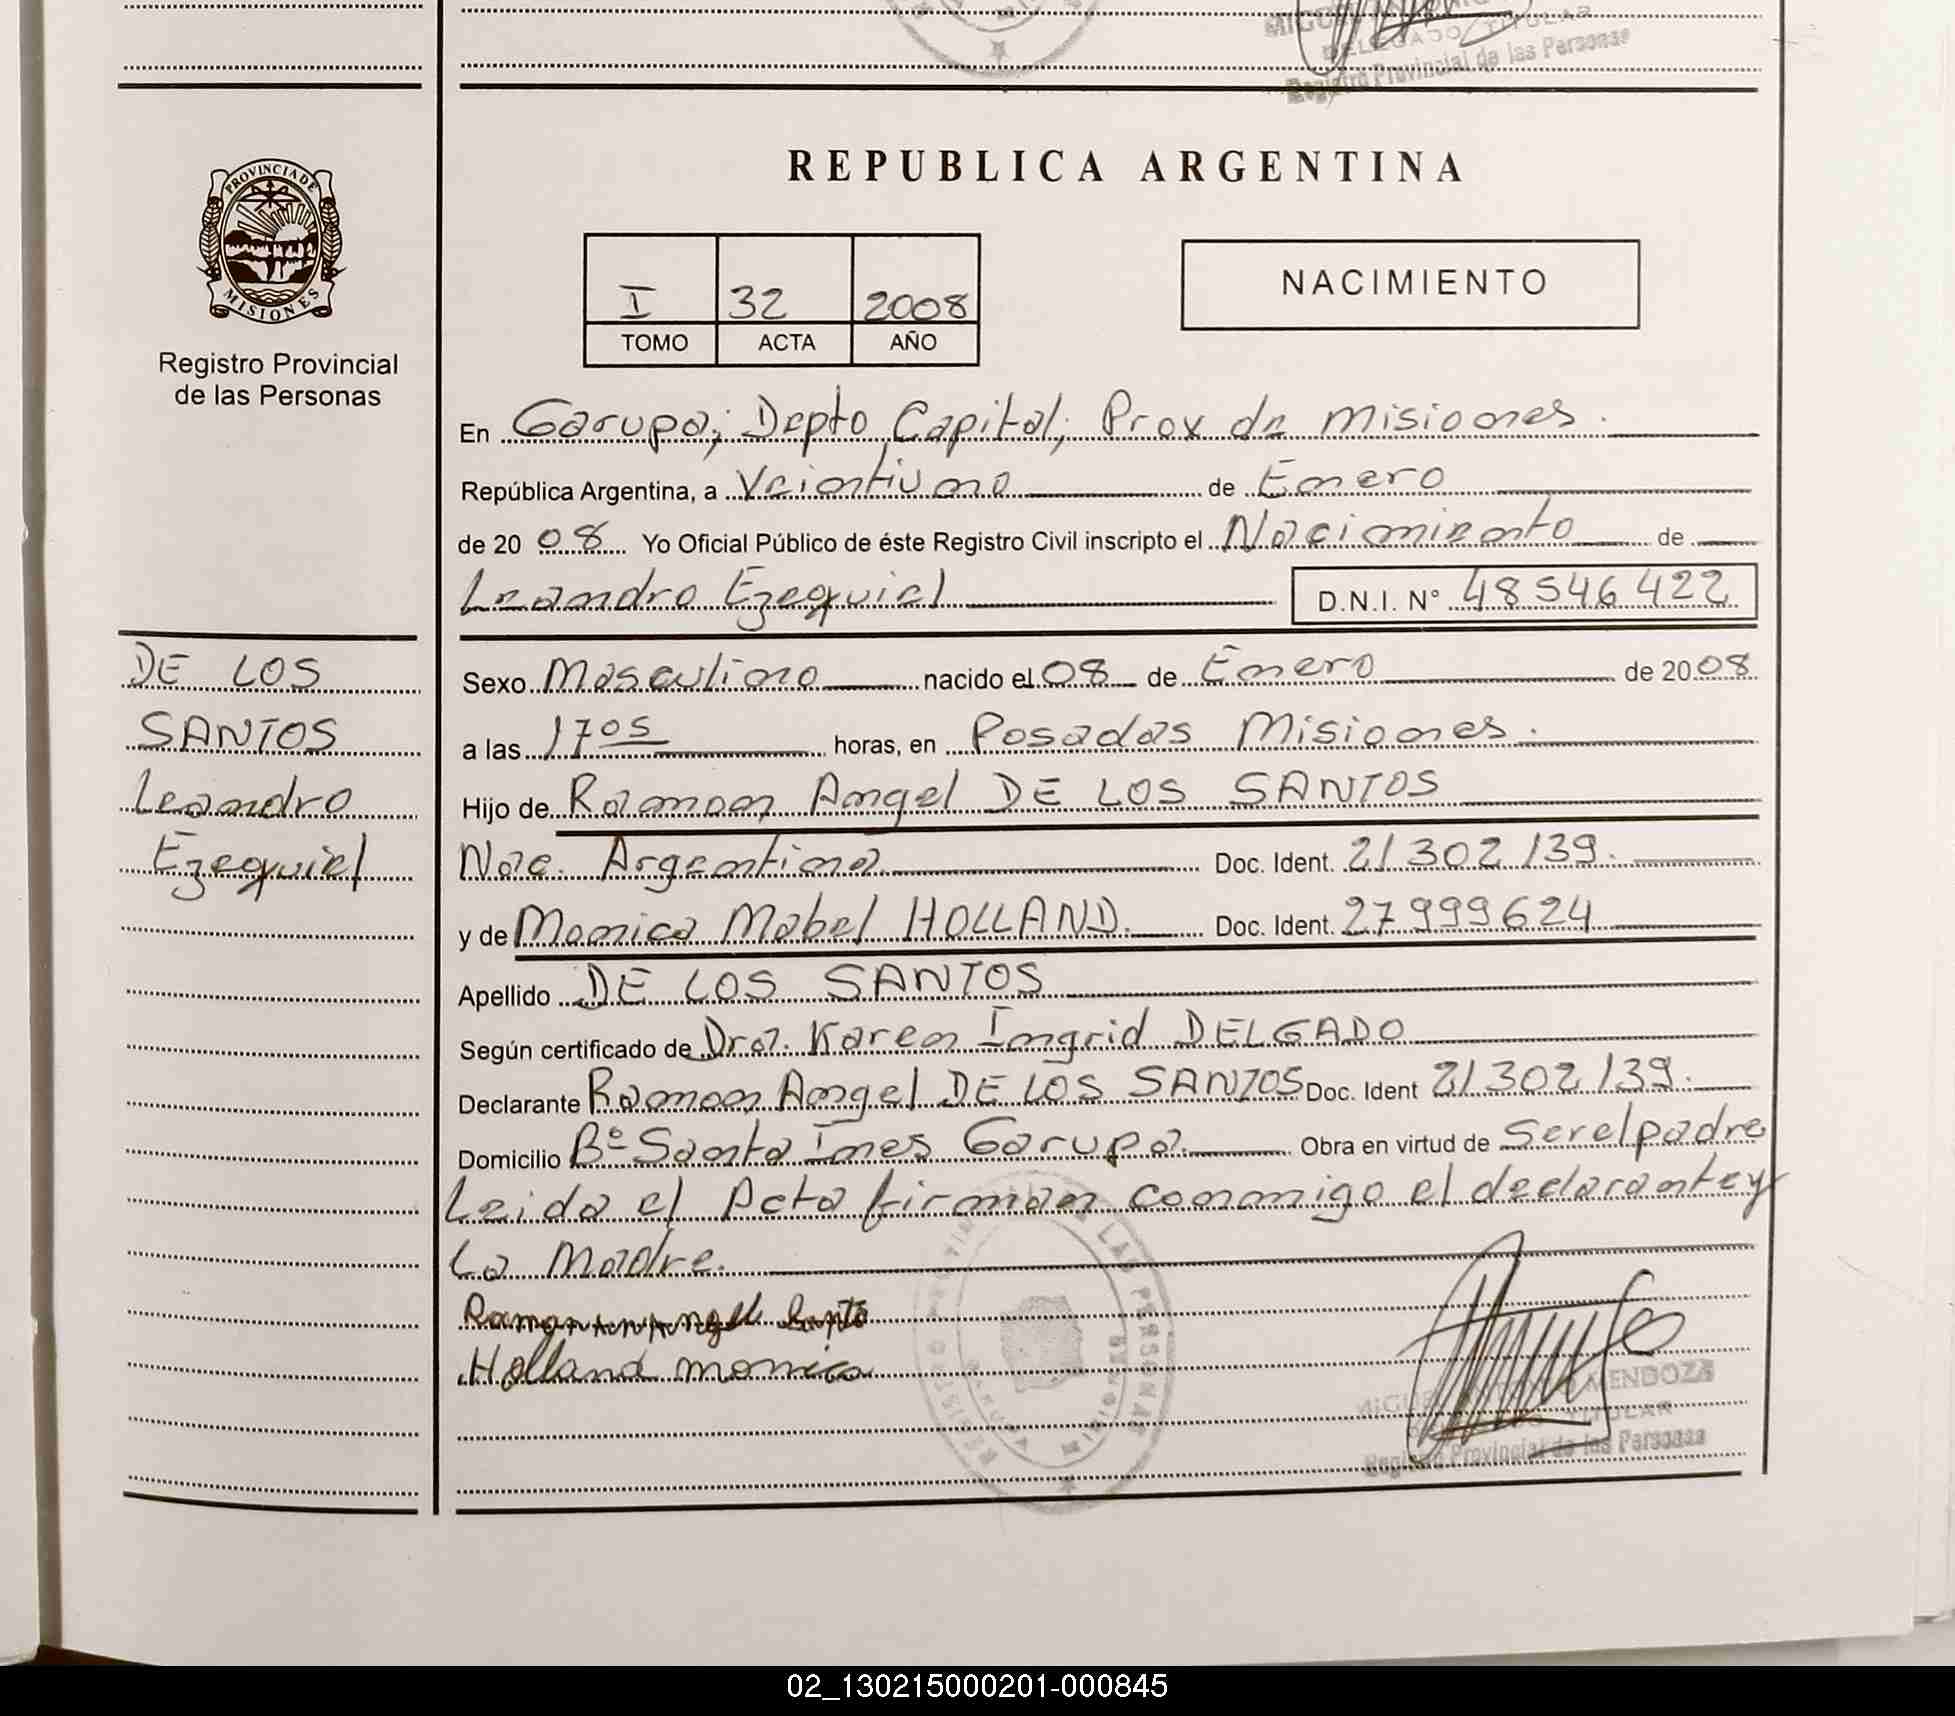 MIGUEL
DELEGADO TITULAR
Registro Provincial de las Personas
PROVINCIA DE
MISIONES
Registro Provincial
de las Personas
REPUBLICA ARGENTINA
I 32 2008
TOMO ACTA AÑO
NACIMIENTO
En Garupa; Depto Capital; Prov de Misiones.
República Argentina, a Veintiuno de Enero
de 20 08 Yo Oficial Público de éste Registro Civil inscripto el Nacimiento de
Leandro Ezequiel D.N.I. N° 48 546 422
DE LOS
SANTOS
Leandro
Ezequiel
Sexo Masculino nacido el 08 de Enero de 20 08
a las 17 05 horas, en Posadas Misiones.
Hijo de Ramon Angel DE LOS SANTOS
Nac. Argentina Doc. Ident. 21 302 139.
y de Monica Mabel HOLLAND. Doc. Ident. 27 999 624
Apellido DE LOS SANTOS
Según certificado de Dra. Karen Ingrid DELGADO
Declarante Ramon Angel DE LOS SANTOS Doc. Ident 21 302 139.
Domicilio B° Santa Ines Garupa. Obra en virtud de Ser el padre
Leida el Acta firman conmigo el declarante y
La Madre.
Holland monica
REGISTRO PROVINCIAL DE LAS PERSONAS
MISIONES
MENDOZA
TITULAR
Registro Provincial de las Personas
02_130215000201-000845